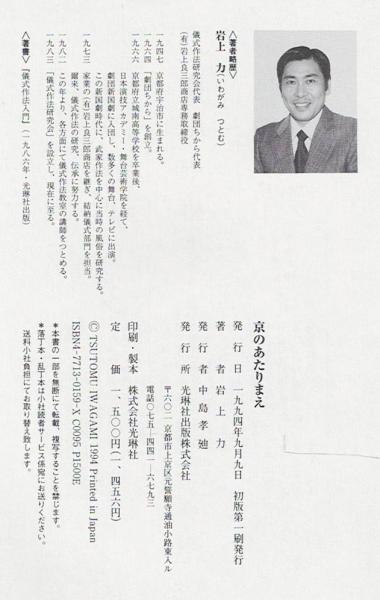 〈著者略歴〉
岩上 力（いわがみ つとむ）
儀式作法研究会代表 劇団ちから代表
（有）岩上良三郎商店専務取締役
一九四七 京都府宇治市に生まれる。
一九六四 「劇団ちから」を創立。
一九六六 京都府立城南高等学校を卒業後、
日本演技アカデミー・舞台芸術学院を経て、
劇団新国劇に入団し、数多くの舞台、テレビに出演。
この新国劇時代に、武家作法を中心に当時の風俗を研究する。
一九七三 家業の（有）岩上良三郎商店を継ぎ、結納儀式部門を担当。
爾来、儀式作法の研究、伝承に努力する。
一九八二 この年より、各方面にて儀式作法教室の講師をつとめる。
一九八三 「儀式作法研究会」を設立し、現在に至る。
〈著書〉『儀式作法入門』（一九八六年・光琳社出版）
京のあたりまえ
発行日 一九九四年九月九日 初版第一刷発行
著者 岩上 力
発行者 中島孝廸
発行所 光琳社出版株式会社
〒六〇二 京都市上京区元誓願寺通油小路東入ル
電話〇七五―四四一―六七九三
印刷・製本 株式会社光琳社
定価 一、五〇〇円（一、四五六円）
Ⓒ TSUTOMU IWAGAMI 1994 Printed in Japan
ISBN4-7713-0159-X C0095 P1500E
＊本書の一部を無断にて転載、複写することを禁じます。
＊落丁本・乱丁本は小社読者サービス係宛にお送りください。
送料小社負担にてお取り替え致します。